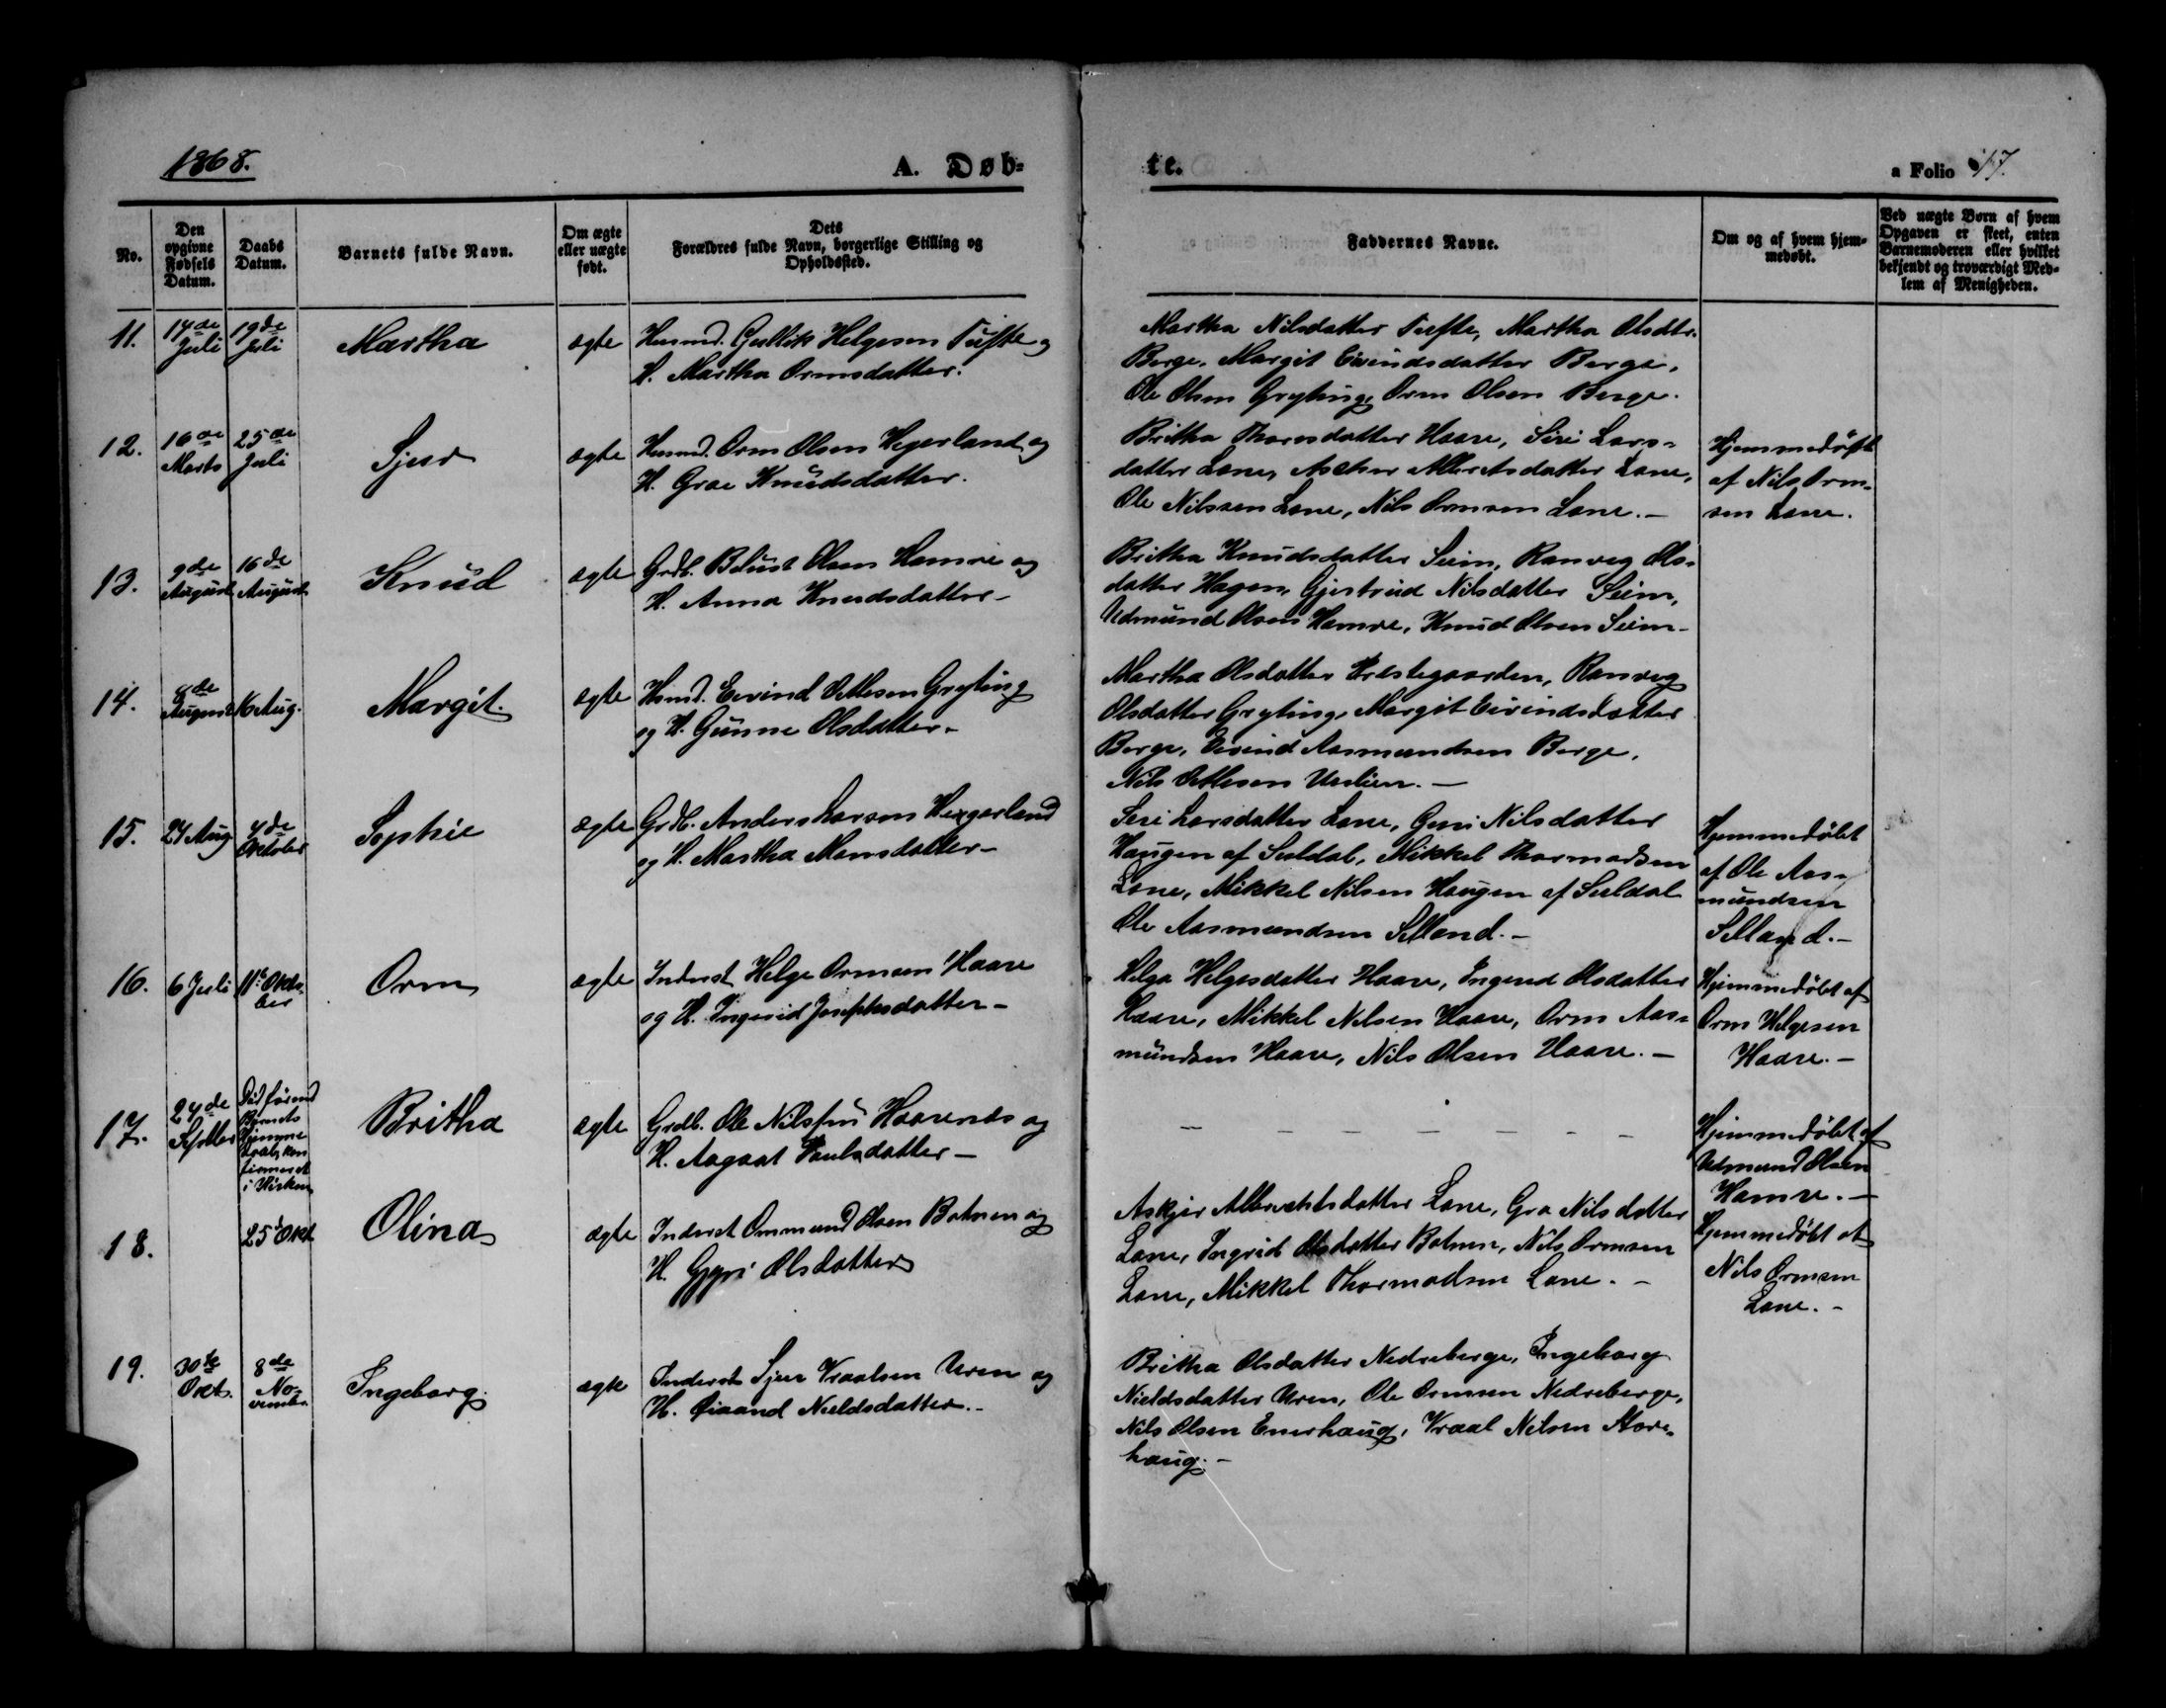 1868.
A. Døb-
te.
a Folio 17.
No.
Den opgivne Fødsels Datum.
Daabs Datum.
Barnets fulde Navn.
Om ægte eller uægte født.
Dets Forældres fulde Navn, borgerlige Stilling og Opholdssted.
Faddernes Navne.
Om og af hvem hjemmedøbt.
Ved uægte Børn af hvem Opgaven er skeet, enten Barnemoderen eller hvilket bekjendt og troværdigt Medlem af Menigheden.
11.
14de Juli
19de Juli
Martha
ægte
Husmd. Gullik Helgesen Tufte og
H. Martha Ormsdatter.
Martha Nilsdatter Tufte, Martha Olsdtr.
Berge, Margit Eivindsdatter Berge,
Ole Olsen Gryting, Orm Olsen Berge.
12.
16de Marts
25de Juli
Sjur
ægte
Husmd. Orm Olsen Hegerland og
H. Groe Knudsdatter.
Britha Thorsdatter Haare, Siri Lars-
datter Lone, Albretsdatter Lone,
Ole Nilssen Lone, Nils Ormsen Lone.-
Hjemmedøbt
af Nils Orm-
sen Lone.
13.
9de August
16de August
Knud
ægte
Grdb. Olsen Hamre og
H. Anna Knudsdatter-
Britha Knudsdatter Seim, Ranveg Ols-
datter Hagen, Gjertrud Nilsdatter Seim,
Udmund Olsen Hamre, Knud Olsen Seim-
14.
8de August
16 Aug.
Margit.
ægte
Husmd. Eivind Osmsen Gryting
og H. Gunne Olsdatter-
Martha Olsdatter Prestegaarden, Ranveg
Olsdatter Gryting, Margit Eivindsdatter
Berge, Eivind Aasmundsen Berge,
Nils
15.
24 Aug
4de Oktober
Sophie
ægte
Grdb. Anders Larsen Hegerland
og H. Martha Monsdatter-
Siri Larsdatter Lone, Guri Nilsdatter
Haugen af Suldal, Mikkel Thormodsen
Lone, Mikkel Nilsen Haugen af Suldal
Ole Aasmundsen Selland.-
Hjemmedøbt
af Ole Aas-
mundsen
Selland.-
16.
6 Juli
11te Okto-
ber
Orm
ægte
Inderst Helge Ormsen Haare
og H. Ingerid Josephsdatter-
Helga Helgesdatter Haare, Ingerid Olsdatter
Haare, Mikkel Nilsen Haare, Orm Aas-
mundsen Haare, Nils Olsen Haare.-
Hjemmedøbt af
Orm Helgesen
Haare.-
17.
24de Septbr
Død førend
Barnets
Hjemme
daab kon
firmeret
i Kirken
Britha
ægte
Grdb. Ole Nilssen Haarenæs og
H. Aagaat Paulsdatter-
- - - - - - -
Hjemmedøbt af
Udmund Olsen
Hamre.-
18.
25de Okt
Olina
ægte
Inderst Ommund Olsen Botnen og
H. Gyri Olsdatter
Askjer Albrechtsdatter Lone, Gro Nilsdatter
Lone, Ingrid Olsdatter Botnen, Nils Ormsen
Lone, Mikkel Thormodsen Lone.-
Hjemmedøbt af
Nils Ormsen
Lone.-
19.
30te Okt.
8de
No-
vembr.
Ingeborg
ægte
Inderst Sjur Vraalsen Uren og
H. Nieldsdatter.-
Britha Olsdatter Nedreberge, Ingeborg
Nieldsdatter Uren, Ole Ormsen Nedreberge,
Nils Olsen Enerhaug, Vraal Nilsen Store-
haug.-